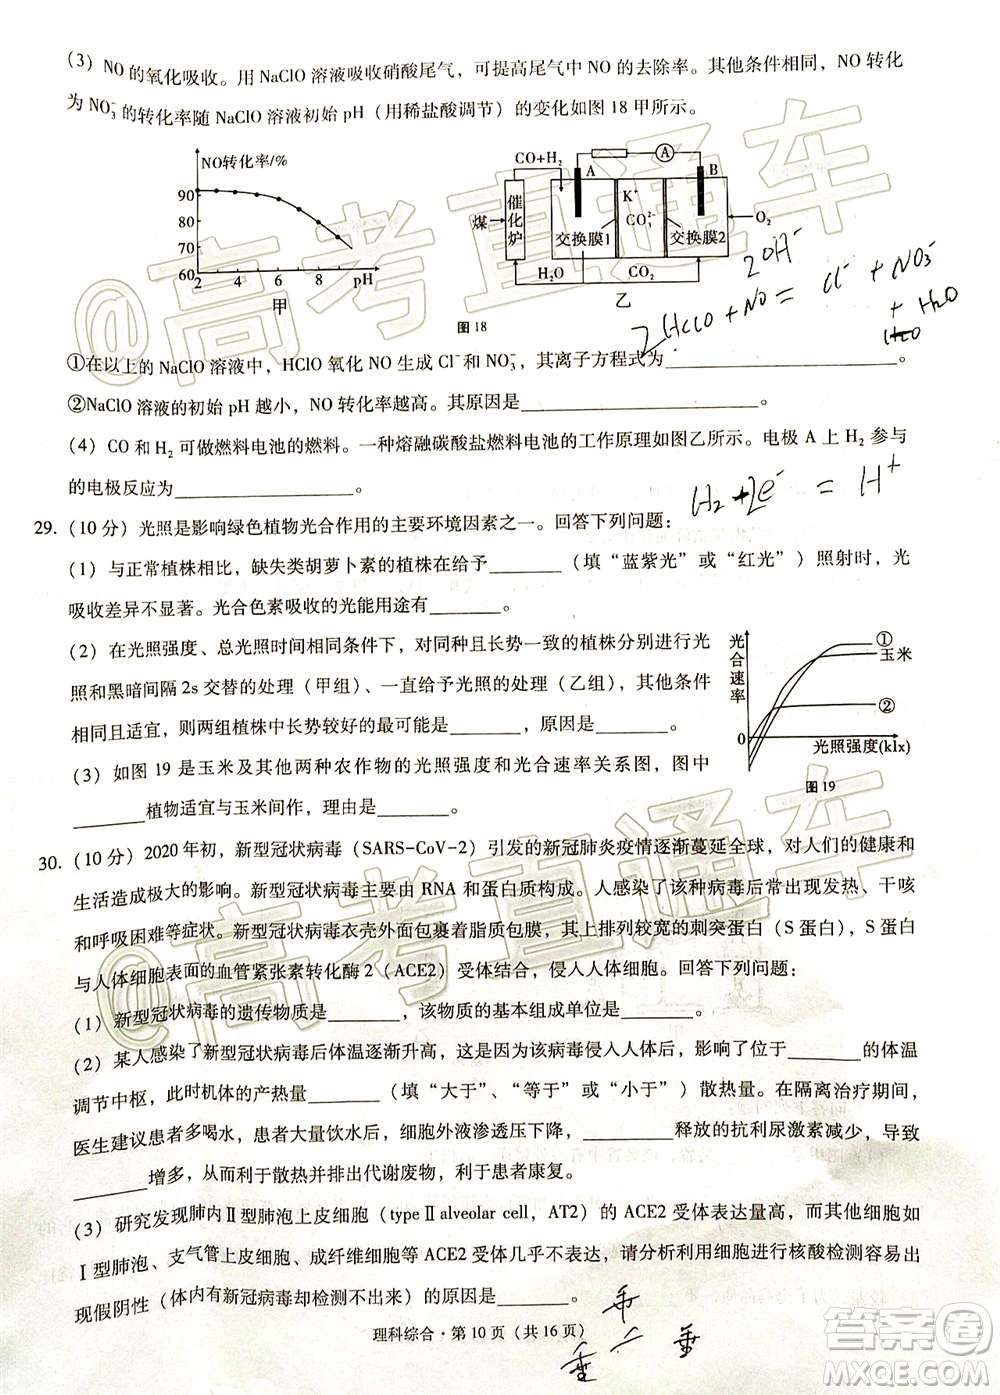 (3) NO的氧化吸收。用 NaClO 溶液吸收硝酸尾气，可提高尾气中 NO 的去除率。其他条件相同，NO 转化
为 NO₃⁻ 的转化率随 NaClO 溶液初始 pH（用稀盐酸调节）的变化如图 18 甲所示。
NO转化率/%
90
80
70
60
2 4 6 8 pH
甲
CO+H₂
A
A
B
催化炉
煤
K⁺
CO₃²⁻
交换膜1
交换膜2
O₂
H₂O
CO₂
乙
图 18
2OH⁻
2HClO + NO = Cl⁻ + NO₃⁻
+ H₂O
H₂O
①在以上的 NaClO 溶液中，HClO 氧化 NO 生成 Cl⁻和 NO₃⁻，其离子方程式为________。
②NaClO 溶液的初始 pH 越小，NO 转化率越高。其原因是________。
(4) CO 和 H₂ 可做燃料电池的燃料。一种熔融碳酸盐燃料电池的工作原理如图乙所示。电极 A 上 H₂ 参与
的电极反应为________。
H₂ + 2e⁻ = H⁺
29.（10 分）光照是影响绿色植物光合作用的主要环境因素之一。回答下列问题：
(1) 与正常植株相比，缺失类胡萝卜素的植株在给予________（填“蓝紫光”或“红光”）照射时，光
吸收差异不显著。光合色素吸收的光能用途有________。
(2) 在光照强度、总光照时间相同条件下，对同种且长势一致的植株分别进行光
照和黑暗间隔 2s 交替的处理（甲组）、一直给予光照的处理（乙组），其余条件
相同且适宜，则两组植株中长势较好的最可能是________，原因是________。
(3) 如图 19 是玉米及其他两种农作物的光照强度和光合速率关系图，图中
________植物适宜与玉米间作，理由是________。
光合速率
①
玉米
②
0
光照强度(klx)
图 19
30.（10 分）2020 年初，新型冠状病毒（SARS-CoV-2）引发的新冠肺炎疫情逐渐蔓延全球，对人们的健康和
生活造成极大的影响。新型冠状病毒主要由 RNA 和蛋白质构成。人感染了该种病毒后常出现发热、干咳
和呼吸困难等症状。新型冠状病毒衣壳外面包裹着包膜，其上排列较宽的刺突蛋白（S 蛋白），S 蛋白
与人体细胞表面的血管紧张素转化酶 2（ACE2）受体结合，侵入人体细胞。回答下列问题：
(1) 新型冠状病毒的遗传物质是________，该物质的基本组成单位是________。
(2) 某人感染了新型冠状病毒后体温逐渐升高，这是因为该病毒侵入细胞后，影响了位于________的体温
调节中枢，此时机体的产热量________（填“大于”、“等于”或“小于”）散热量。在隔离治疗期间，
医生建议患者多喝水，患者大量饮水后，细胞外液渗透压下降，________释放的抗利尿激素减少，导致
________增多，从而利于散热并排出代谢废物，利于患者康复。
(3) 研究发现肺内Ⅱ型肺泡上皮细胞（type Ⅱ alveolar cell，AT2）的 ACE2 受体表达量高，而成人体细胞如
Ⅰ型肺泡、支气管上皮细胞、成纤维细胞等 ACE2 受体几乎不表达，请分析利用鼻拭子进行核酸检测容易出
现假阴性（体内有新冠病毒却检测不出来）的原因是________。
理科综合·第 10 页（共 16 页）
@高考直通车
@高考直通车
答案圈
MXQE.COM